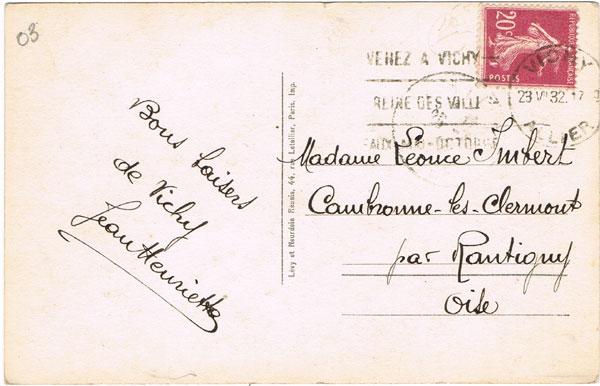 03
Bons baisers
de Vichy
Jean Henriette
Lévy et Neurdein Réunis, 44, rue Letellier, Paris, Imp.
20c
RÉPUBLIQUE FRANÇAISE
POSTES
VENEZ A VICHY
REINE DES VILLES
VICHY
23 VI 32
ALLIER
Madame Léonce Imbert
Cambronne-les-Clermont
par Rantigny
Oise